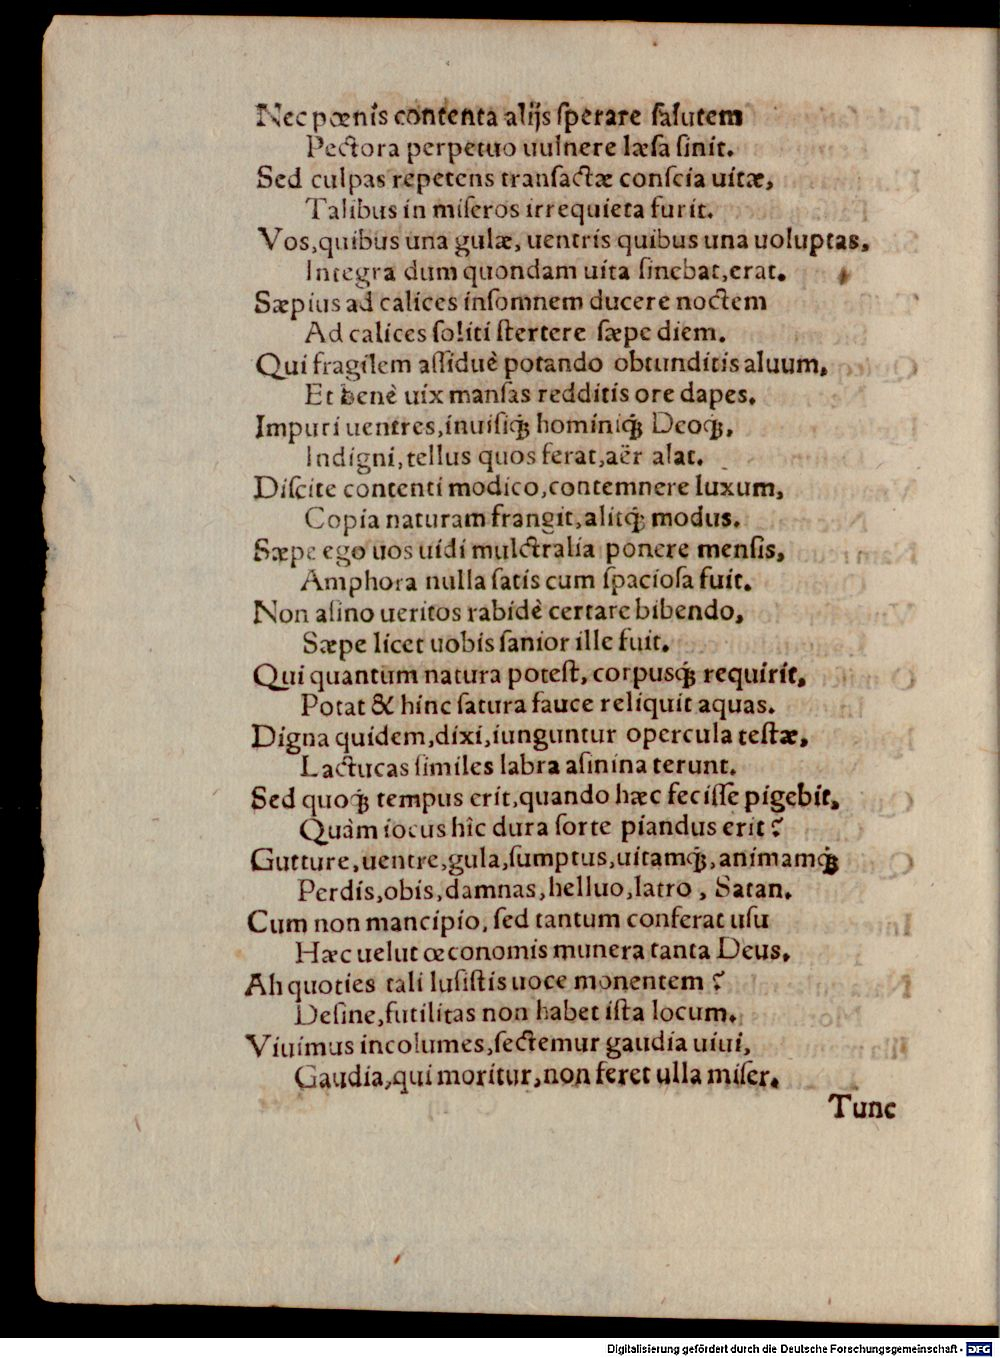 Nec pœnis contenta alijs ſperare ſalutem
Pectora perpetuo uulnere læſa ſinit.
Sed culpas repetens tranſactæ conſcia uitæ,
Talibus in miſeros irrequieta furit.
Vos, quibus una gulæ, uentris quibus una uoluptas,
Integra dum quondam uita ſinebat, erat.
Sæpius ad calices inſomnem ducere noctem
Ad calices ſoliti ſtertere ſæpe diem.
Qui fragilem aſſiduè potando obtunditis aluum,
Et benè uix manſas redditis ore dapes.
Impuri uentres, inuiſiq́ꝫ hominiq́ꝫ Deoq́ꝫ,
Indigni, tellus quos ferat, aër alat.
Diſcite contenti modico, contemnere luxum,
Copia naturam frangit, alitq́ꝫ modus.
Sæpe ego uos uidi mulctralia ponere menſis,
Amphora nulla ſatis cum ſpacioſa fuit.
Non aſino ueritos rabidè certare bibendo,
Sæpe licet uobis ſanior ille fuit.
Qui quantum natura poteſt, corpusq́ꝫ requirit,
Potat & hinc ſatura fauce reliquit aquas.
Digna quidem, dixi, iunguntur opercula teſtæ,
Lactucas ſimiles labra aſinina terunt.
Sed quoq́ꝫ tempus erit, quando hæc feciſſe pigebit,
Quàm iocus hîc dura ſorte piandus erit?
Gutture, uentre, gula, ſumptus, uitamq́ꝫ, animamq́ꝫ
Perdis, obis, damnas, helluo, latro, Satan.
Cum non mancipio, ſed tantum conferat uſu
Hæc uelut œconomis munera tanta Deus.
Ah quoties tali luſiſtis uoce monentem?
Deſine, futilitas non habet iſta locum.
Viuimus incolumes, ſectemur gaudia uiui,
Gaudia, qui moritur, non feret ulla miſer.
Tunc
Digitalisierung gefördert durch die Deutsche Forschungsgemeinschaft - DFG